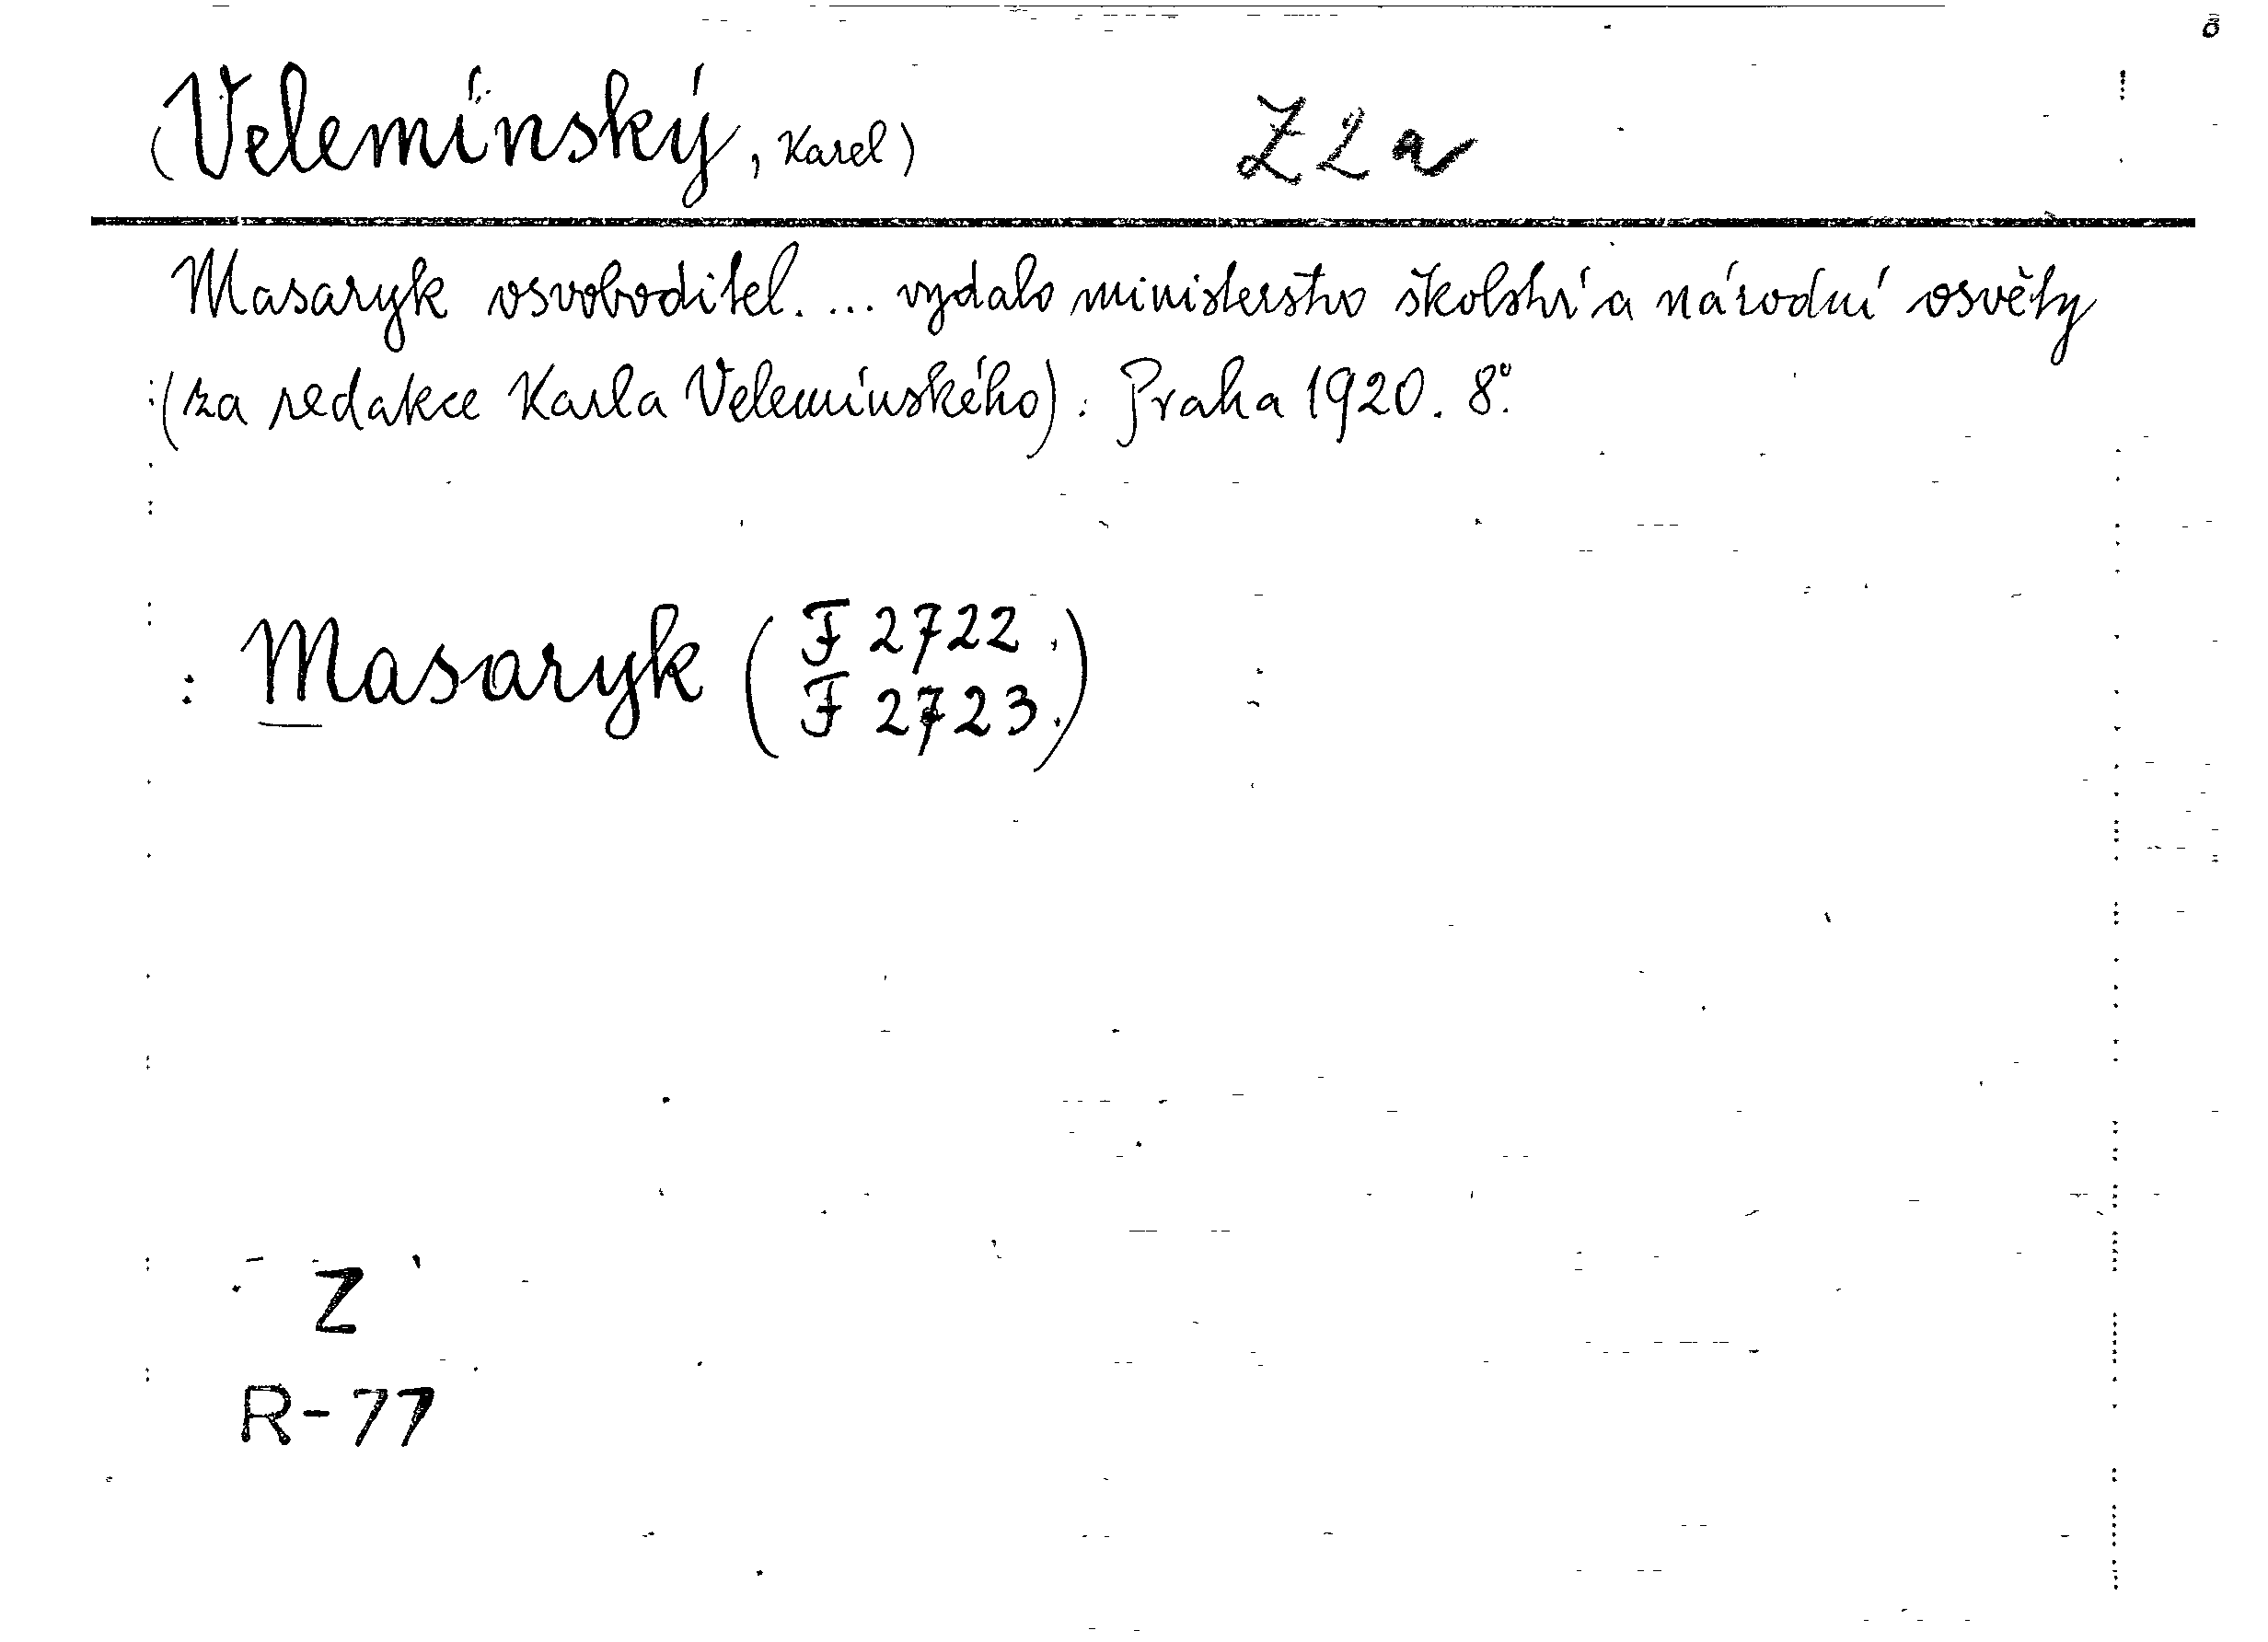 (Velemínský, Karel) Z2a
Masaryk osvoboditel. ... vydalo ministerstvo školství a národní osvěty
(za redakce Karla Velemínského). Praha 1920. 8°.
: Masaryk (F 2722.
F 2723.)
Z
R-77